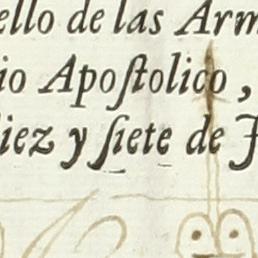 ello de las Arm
io Apoſtolico,
iez y ſiete de F